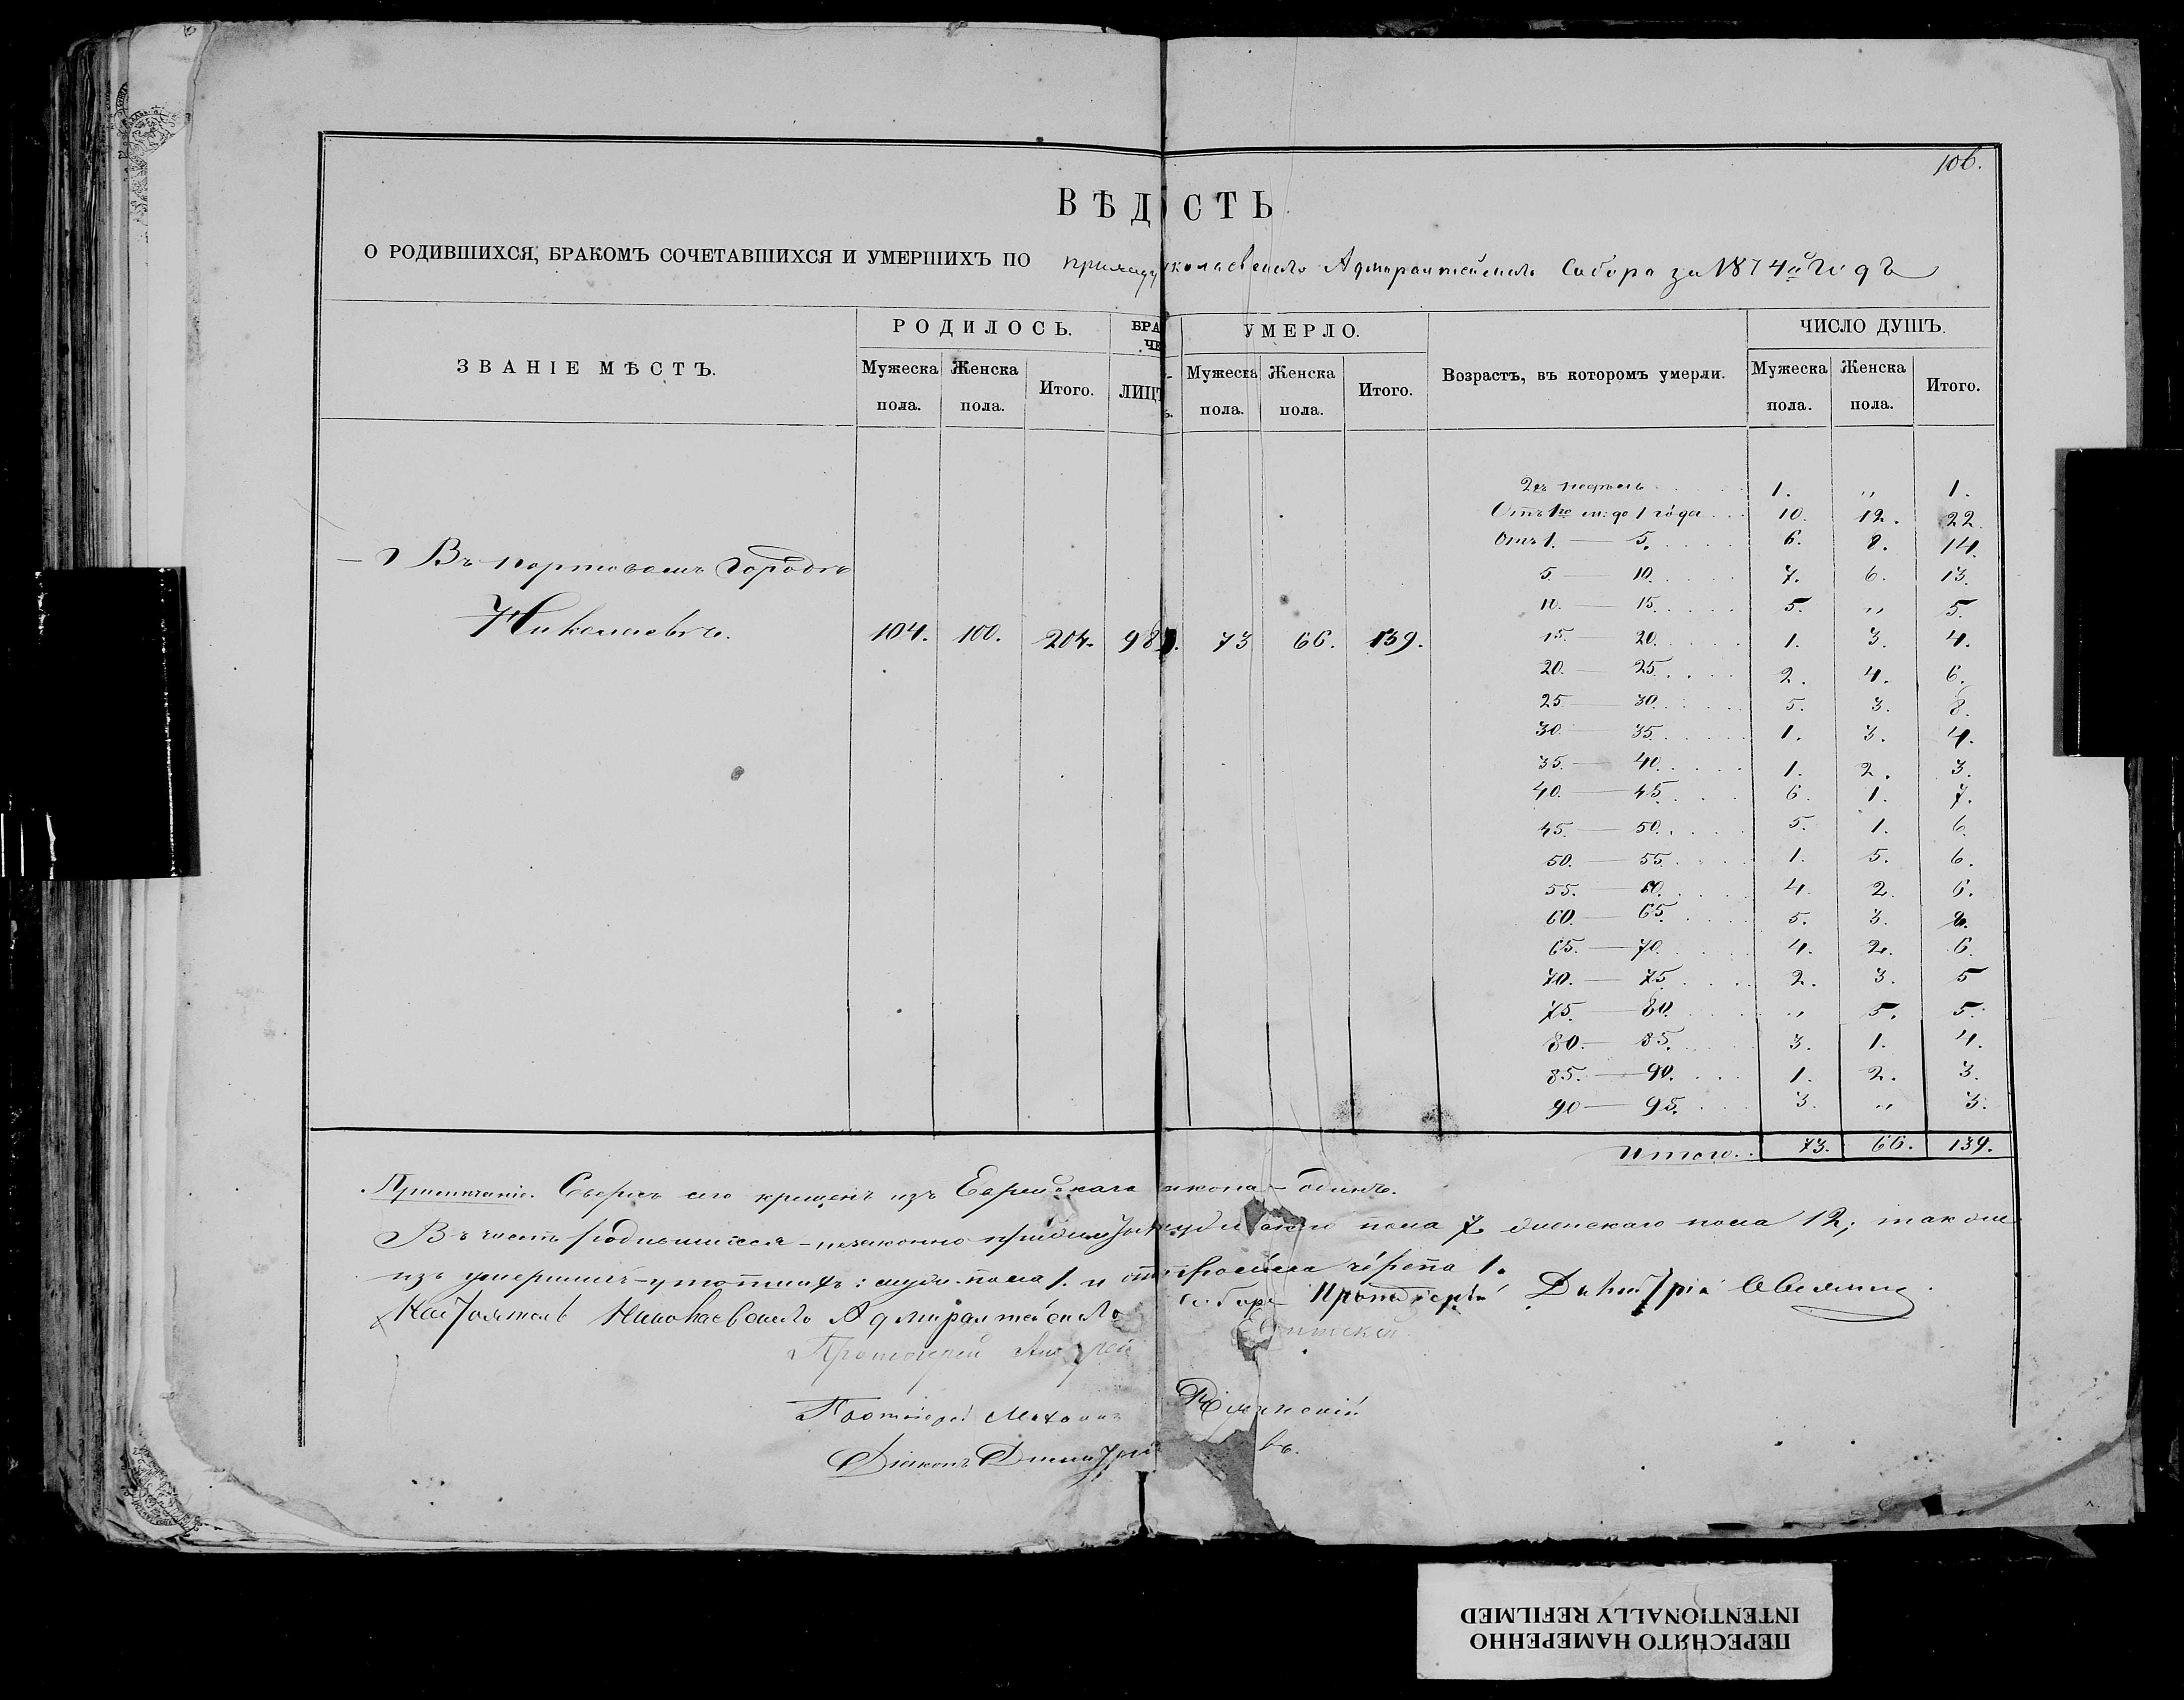 106.
ВѢД СТЬ
О РОДИВШИХСЯ, БРАКОМЪ СОЧЕТАВШИХСЯ И УМЕРШИХЪ ПО приходу колаевскаго Адмиралтейскаго Собора за 1874й годъ
ЗВАНІЕ МѢСТЪ. РОДИЛОСЬ. БРА ЧЕ УМЕРЛО. Возрастъ, въ которомъ умерли. ЧИСЛО ДУШЪ.
Мужеска пола. Женска пола. Итого. ЛИЦ Мужеска пола. Женска пола. Итого. Мужеска пола. Женска пола. Итого.
2хъ недѣль 1. „ 1.
Отъ 1го м: до 1 года 10. 12. 22.
Отъ 1. — 5. 6. 8. 14.
5. — 10. 7. 6. 13.
10. — 15. 5. „ 5.
15. — 20. 1. 3. 4.
20. — 25. 2. 4. 6.
25 — 30. 5. 3. 8.
30. — 35. 1. 3. 4.
35. — 40. 1. 2. 3.
40. — 45. 6. 1. 7.
45. — 50. 5. 1. 6.
50. — 55. 1. 5. 6.
55. — 60. 4. 2. 6.
60. — 65. 5. 3. 8.
65. — 70. 4. 2. 6.
70. — 75 2. 3. 5
75. — 80. „ 5. 5.
80. — 85. 3. 1. 4.
85. — 90. 1. 2. 3.
90 — 95. 3. „ 3.
Итого. 73. 66. 139.
Въ портовомъ городѣ
Николаевѣ. 104. 100. 204. 98 73 66. 139.
Примѣчаніе. Сверхъ сего крещенъ изъ Еврейскаго закона – одинъ.
Въ числѣ родившихся – незаконно пола 7. женскаго пола 12; также
изъ умершихъ – утопшихъ: муж. пола 1. и 1.
Настоятель Николаевскаго Адмиралтейскаго Собора Протоіерей Димитрій
Протоіерей Андрей
Протоіерей
Діаконъ Димитрій въ.
ПЕРЕСНЯТО НАМЕРЕННО
INTENTIONALLY REFILMED